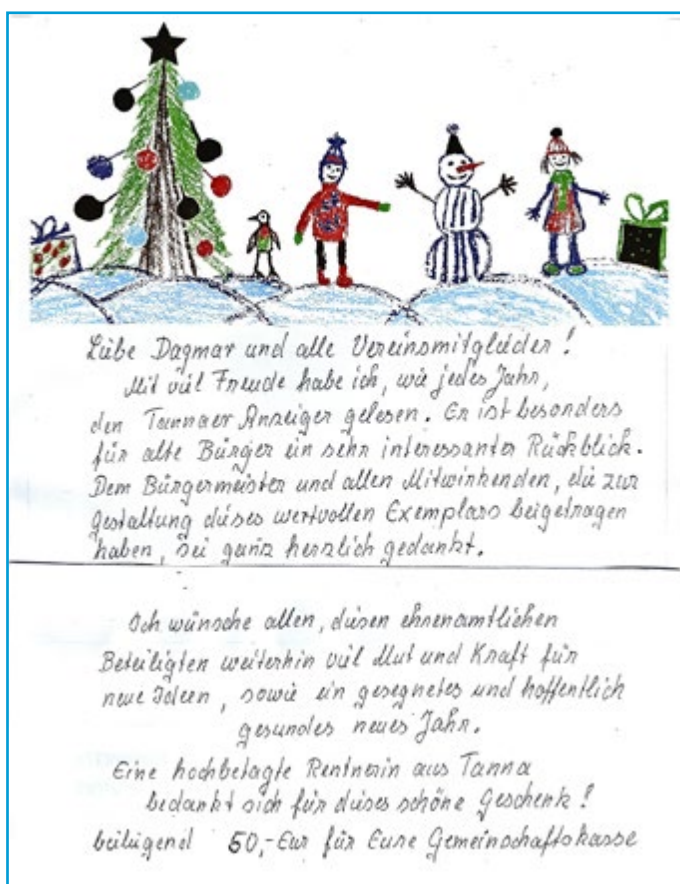 Liebe Dagmar und alle Vereinsmitglieder!
Mit viel Freude habe ich, wie jedes Jahr,
den Tannaer Anzeiger gelesen. Er ist besonders
für alte Bürger ein sehr interessanter Rückblick.
Dem Bürgermeister und allen Mitwirkenden, die zur
Gestaltung dieses wertvollen Exemplars beigetragen
haben, sei ganz herzlich gedankt.
Ich wünsche allen, diesen ehrenamtlichen
Beteiligten weiterhin viel Mut und Kraft für
neue Ideen, sowie ein gesegnetes und hoffentlich
gesundes neues Jahr.
Eine hochbetagte Rentnerin aus Tanna
bedankt sich für dieses schöne Geschenk!
beiliegend 50,- Eur für Eure Gemeinschaftskasse